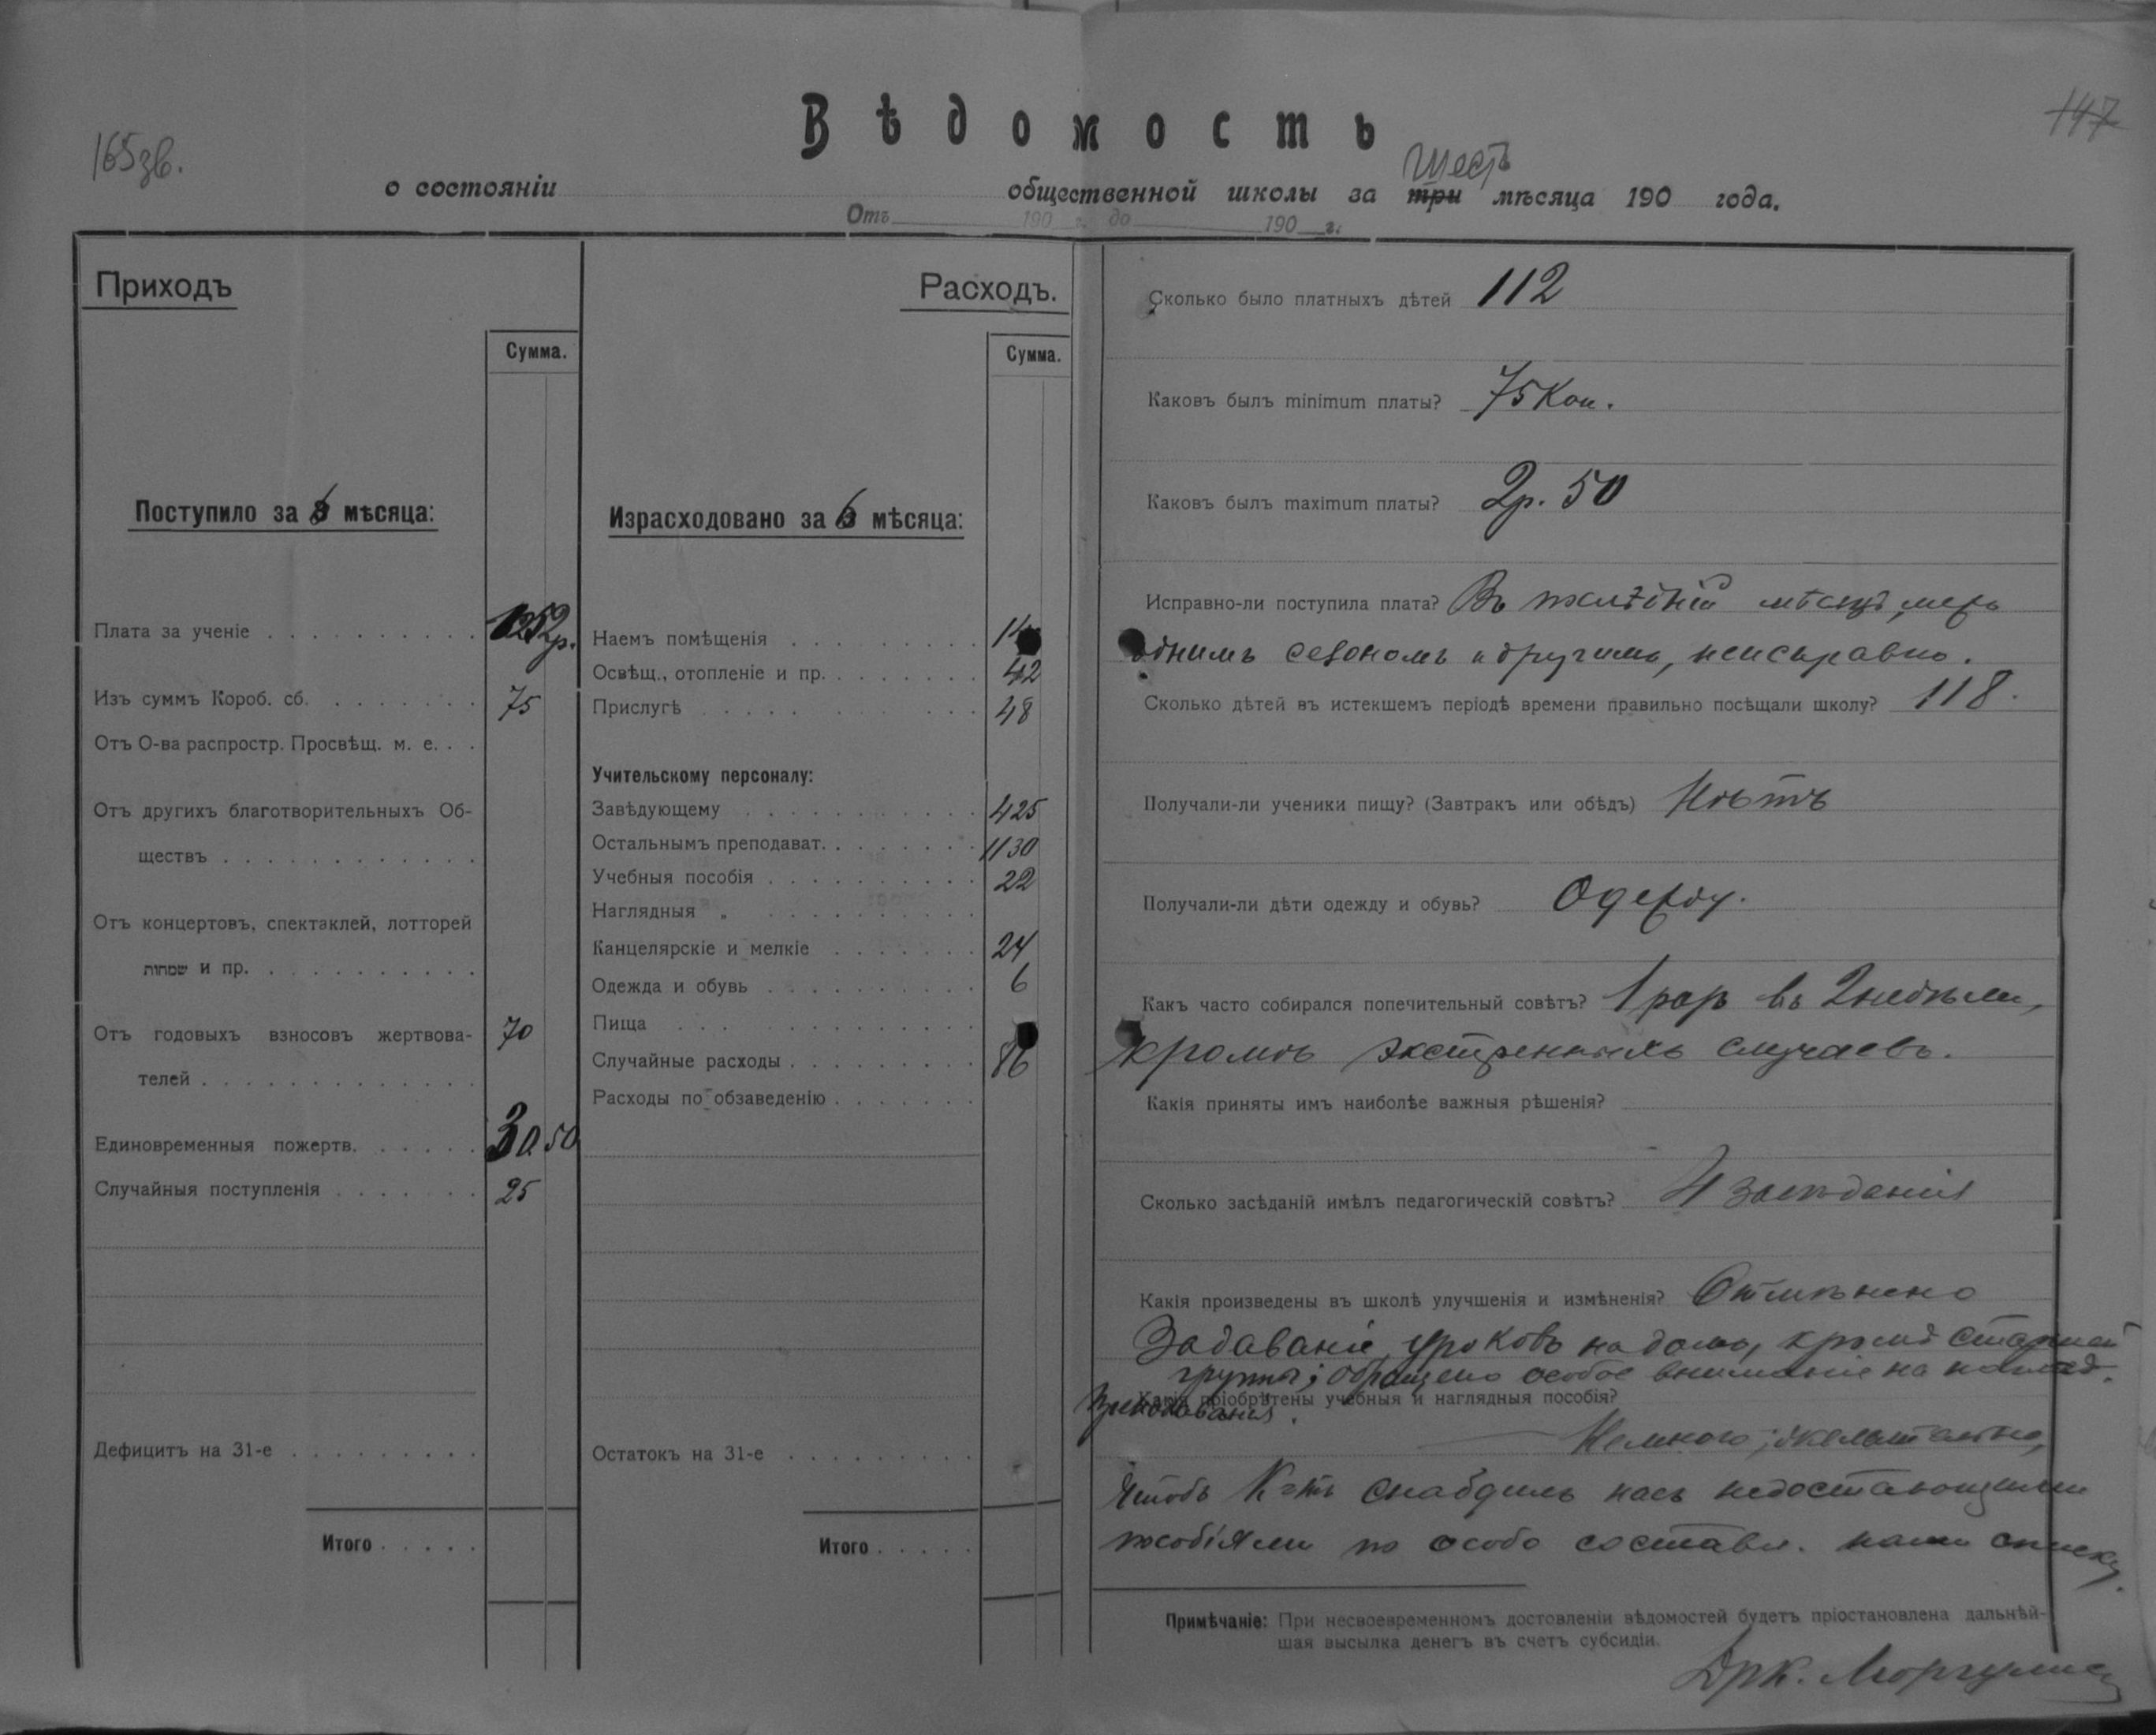 147
165зв.
Вѣдомость
шесть
о состояніи общественной школы за три мѣсяца 190 года.
Отъ 190 г. до 190 г.
Приходъ
Сумма.
Поступило за 6 мѣсяца:
Плата за ученіе 1252р.
Изъ суммъ Короб. сб. 75
Отъ О-ва распростр. Просвѣщ. м. е.
Отъ другихъ благотворительныхъ Об-
ществъ
Отъ концертовъ, спектаклей, лотторей
שמחות и пр.
Отъ годовыхъ взносовъ жертвова- 70
телей
Единовременныя пожертв. 30 50
Случайныя поступленія 25
Дефицитъ на 31-е
Итого
Расходъ.
Сумма.
Израсходовано за 6 мѣсяца:
Наемъ помѣщенія
Освѣщ., отопленіе и пр. 42
Прислугѣ 48
Учительскому персоналу:
Завѣдующему 425
Остальнымъ преподават. 1130
Учебныя пособія 22
Наглядныя „
Канцелярскіе и мелкіе 24
Одежда и обувь 6
Пища
Случайные расходы 86
Расходы по обзаведенію
Остатокъ на 31-е
Итого
Сколько было платныхъ дѣтей 112
Каковъ былъ minimum платы? 75 Коп.
Каковъ былъ maximum платы? 2р. 50
Исправно-ли поступила плата? Въ послѣдній мѣсяцъ, межъ
однимъ сезономъ и другимъ, неисправно.
Сколько дѣтей въ истекшемъ періодѣ времени правильно посѣщали школу? 118.
Получали-ли ученики пищу? (Завтракъ или обѣдъ) Нѣтъ
Получали-ли дѣти одежду и обувь? Одежду.
Какъ часто собирался попечительный совѣтъ? 1 разъ въ 2 недѣли,
кромѣ экстренныхъ случаевъ.
Какія приняты имъ наиболѣе важныя рѣшенія?
Сколько засѣданій имѣлъ педагогическій совѣтъ? 4 засѣданія
Какія произведены въ школѣ улучшенія и измѣненія? Отмѣнено
Задаваніе уроковъ на домъ, кромѣ старшей
группы; обращено особое вниманіе на нагляд.
преподаваніе.
Какія пріобрѣтены учебныя и наглядныя пособія?
Немного; желательно,
чтобъ К-тъ снабдилъ насъ недостающими
пособіями по особо составл. нами списку.
Примѣчаніе: При несвоевременномъ достовленіи вѣдомостей будетъ пріостановлена дальнѣй-
шая высылка денегъ въ счетъ субсидіи.